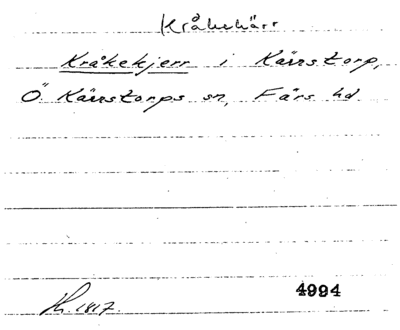 Kråkekärr
Kråkekjerr i Kärrstorp,
Ö. Kärrstorps sn, Färs hd.
Kh. 1817.
4994